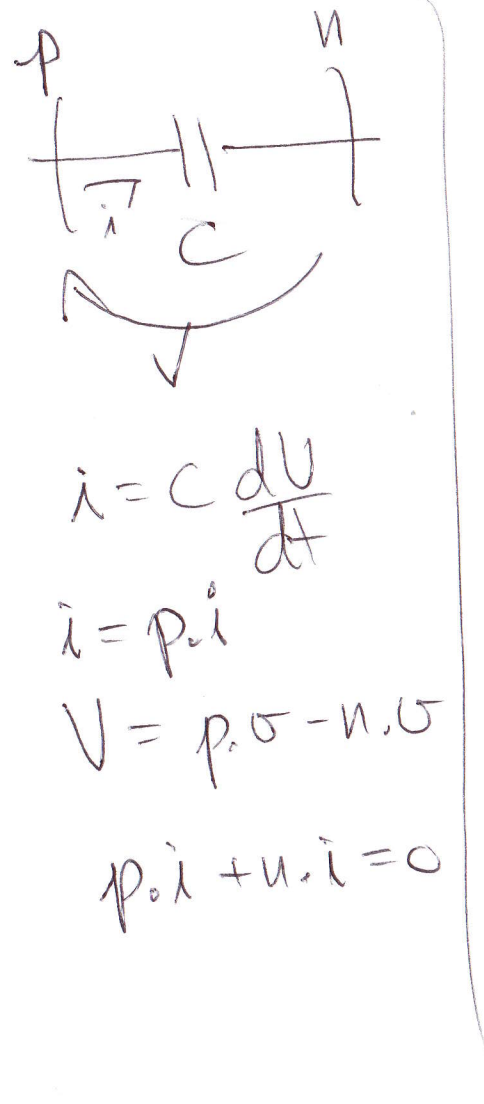 p n
i
C
V
i = C dV/dt
i = p.i
V = p.v - n.v
p.i + n.i = 0